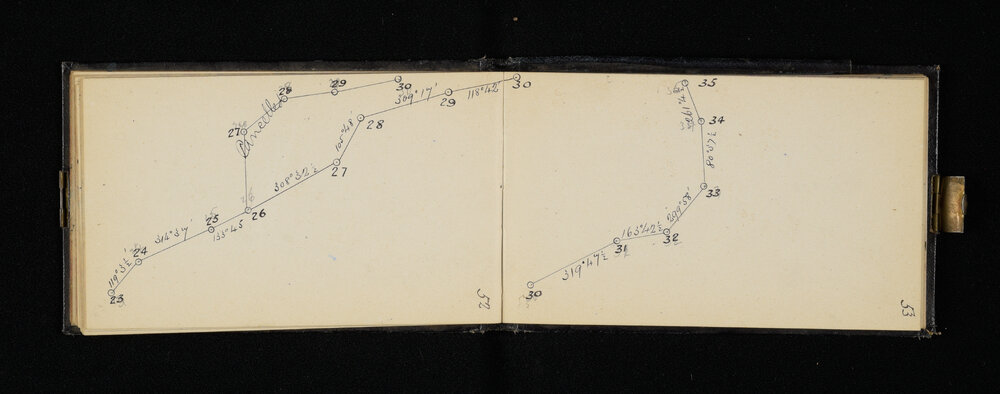 28
29
30
27
Cancelled
309°17'
29
118°42'
30
105°48'
28
308°32½
27
26
25
133°45
314°37'
24
119°3½'
23
52
35
34
33
299°58'
163°42½
32
31
319°47½
30
53